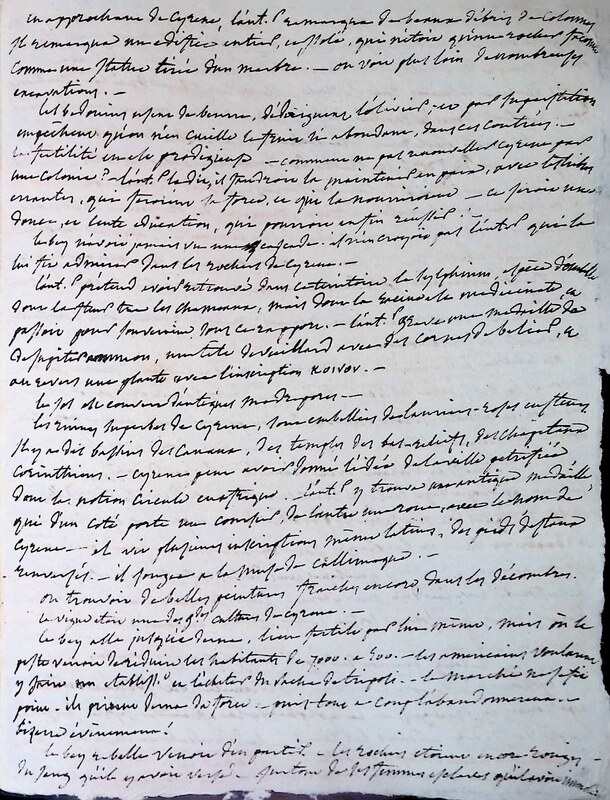 en approchant de Cyrene, l'aut. remarque de beaux débris de Colonnes,
il remarqua un édifice entier, isolé, qui n'étoit qu'un rocher
Comme une Statue tirée d'un marbre. — on voit plus loin de nombreuses
excavations. —
les bedouins usent de beurre, dédaignent l'olivier, et par superstition
empechent qu'on n'en cueille le fruit si abondant, dans ces contrées. —
la fertilité en est prodigieuse — comment ne pas renouveller Cyrene par
une Colonie? — l'aut. il faudroit la maintenir en paix, avec les tribus
errantes, qui feroient sa force, et que la nourriroient — ce seroit une
douce, et lente education, qui pourroit enfin reussir. —
le bey n'avoit jamais vu une cascade. il n'en croyoit pas l'aut. qui la
lui fit admirer dans les rochers de Cyrene. —
l'aut. prétend avoir retrouvé dans ce territoire le Sylphium, espèce d'ombelle
dont la fleur tue les chameaux, mais dont la racine est médicinale, et
passoit pour souveraine sous ce rapport. — l'aut. une medaille de
de Jupiter ammon, une tête de vieillard avec des cornes de belier, et
au revers une plante avec l'inscription κοινον. —
le sol est couvert d'antiques madrepores —
les ruines superbes de Cyrene, sont embellies de lauriers-roses en fleurs
il y a dit bassins des Canaux, des temples des bas-reliefs, des chapiteaux
corinthiens. — Cyrene peut avoir donné l'idée de la ville petrifiée
dont la notion circule en afrique. — l'aut. y trouva une antique médaille,
qui d'un coté porte un, de l'autre une roue, avec le nom de
Cyrene — il vit plusieurs inscriptions meme latines, des pieds de statue
renversés. — il songea a la muse de Callimaque. —
on trouvoit de belles peintures fraiches encore, dans les décombres.
la vigne étoit une des gdes cultures de Cyrene. —
le bey alla jusqu'à derne, lieu fertile par lui même, mais où la
peste venoit de réduire les habitants de 7000. a 500. — les americains voulurent
y faire un établisst. et l'acheter du pacha de tripoli. — le marché ne se fit
point — ils prirent derne de force — puis tout a coup l'abandonnerent —
bizarre évènement!
le bey rebelle venoit d'en partir. — les rochers étoient encore rouges
du sang qu'il y avoit versé — surtout de des femmes esclaves qu'il avoit